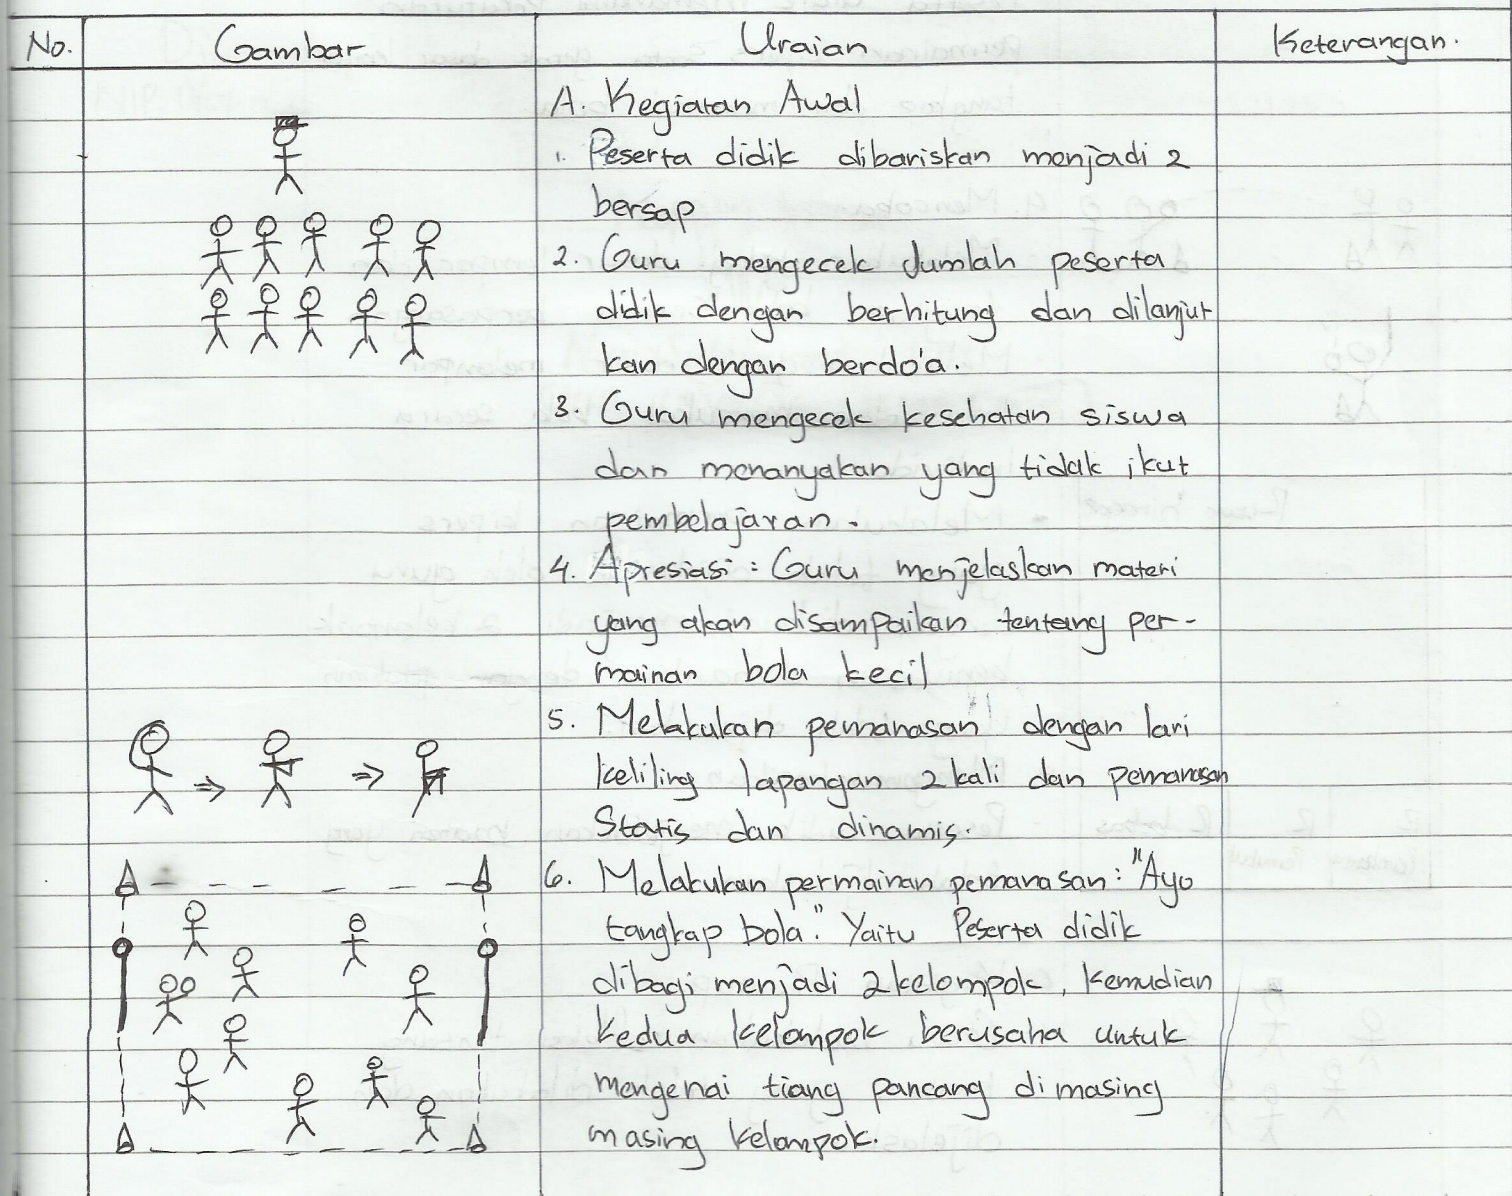 No. Gambar Uraian Keterangan.
A. Kegiatan Awal
1. Peserta didik dibariskan menjadi 2
bersap
2. Guru mengecek Jumlah peserta
didik dengan berhitung dan dilanjut
kan dengan berdo'a.
3. Guru mengecek kesehatan siswa
dan menanyakan yang tidak ikut
pembelajaran.
4. Apresiasi : Guru menjelaskan materi
yang akan disampaikan tentang per-
mainan bola kecil
5. Melakukan pemanasan dengan lari
keliling lapangan 2 kali dan pemanasan
Statis dan dinamis.
6. Melakukan permainan pemanasan : "Ayo
tangkap bola." Yaitu Peserta didik
dibagi menjadi 2 kelompok, kemudian
kedua kelompok berusaha untuk
mengenai tiang pancang di masing
masing kelompok.